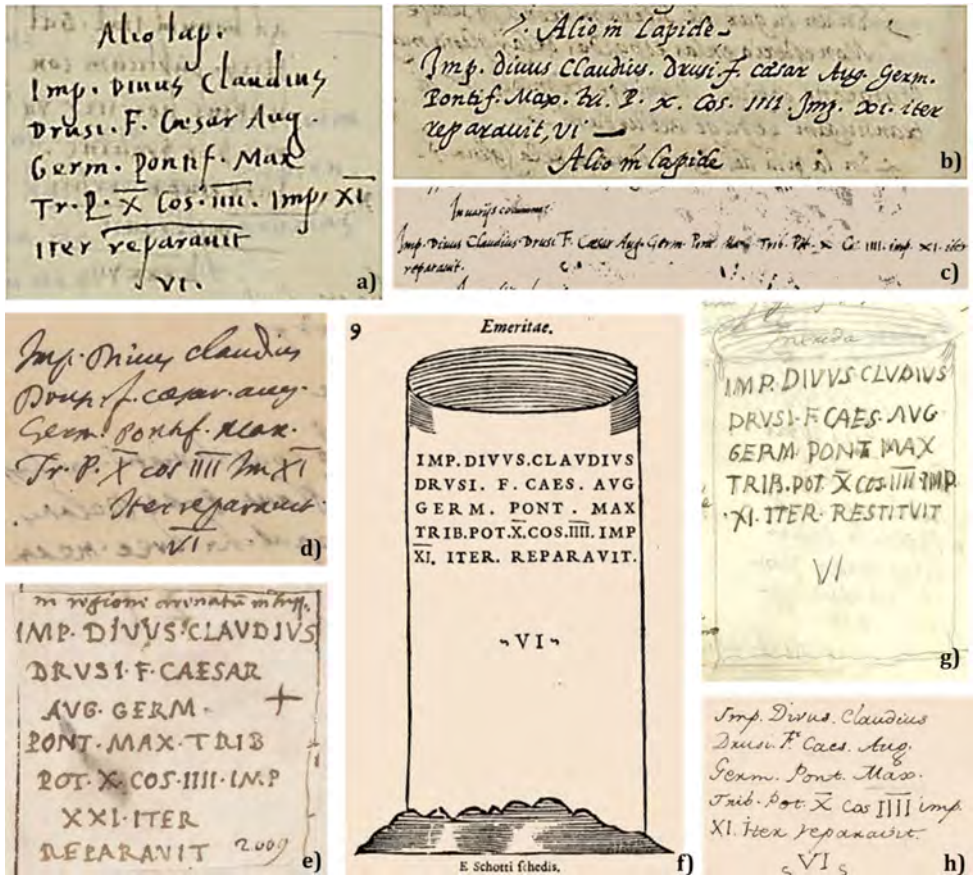 Alio lap.
Imp. Divus Claudius
Drusi. F. Cæsar Aug.
Germ. Pontif. Max
Tr. P. X Cos. IIII. Imp. XI
iter reparauit
. VI .
a)
Alio in Lapide
Imp. diuus Claudius. Drusi. f. cæsar Aug. Germ.
Pontif. Max. tri. P. X. Cos. IIII. Imp. XI. iter
reparauit, VI
Alio in lapide
b)
In varijs columnis.
Imp. Divus Claudius Drusi F. Cæsar Aug. Germ. Pont Max Trib. Pot. X Co IIII. imp. XI. iter
reparauit.
c)
Imp. Divus Claudius
Drusi. f. cæsar. aug.
Germ. Pontif. Max.
Tr. P. X cos IIII Im XI
Iter reparauit
VI
d)
in regione
IMP. DIVVS. CLAVDIVS
DRVSI. F. CAESAR
AVG. GERM.
PONT. MAX. TRIB
POT. X. COS. IIII. IN.P
XXI. ITER
REPARAVIT 2009
e)
9 Emeritae.
IMP. DIVVS. CLAVDIVS
DRVSI. F. CAES. AVG
GERM. PONT. MAX
TRIB.POT.X.COS.IIII. IMP
XI. ITER. REPARAVIT.
VI
E Schotti schedis.
f)
Merida
IMP. DIVVS CLVDIVS
DRVSI. F. CAES. AVG
GERM PONT MAX
TRIB. POT. X COS. IIII. IMP.
XI. ITER. RESTITVIT
VI
g)
Imp. Divus. Claudius
Drusi. F. Caes. Aug.
Germ. Pont. Max.
Trib. Pot. X Cos IIII imp.
XI. Iter reparavit.
VI
h)